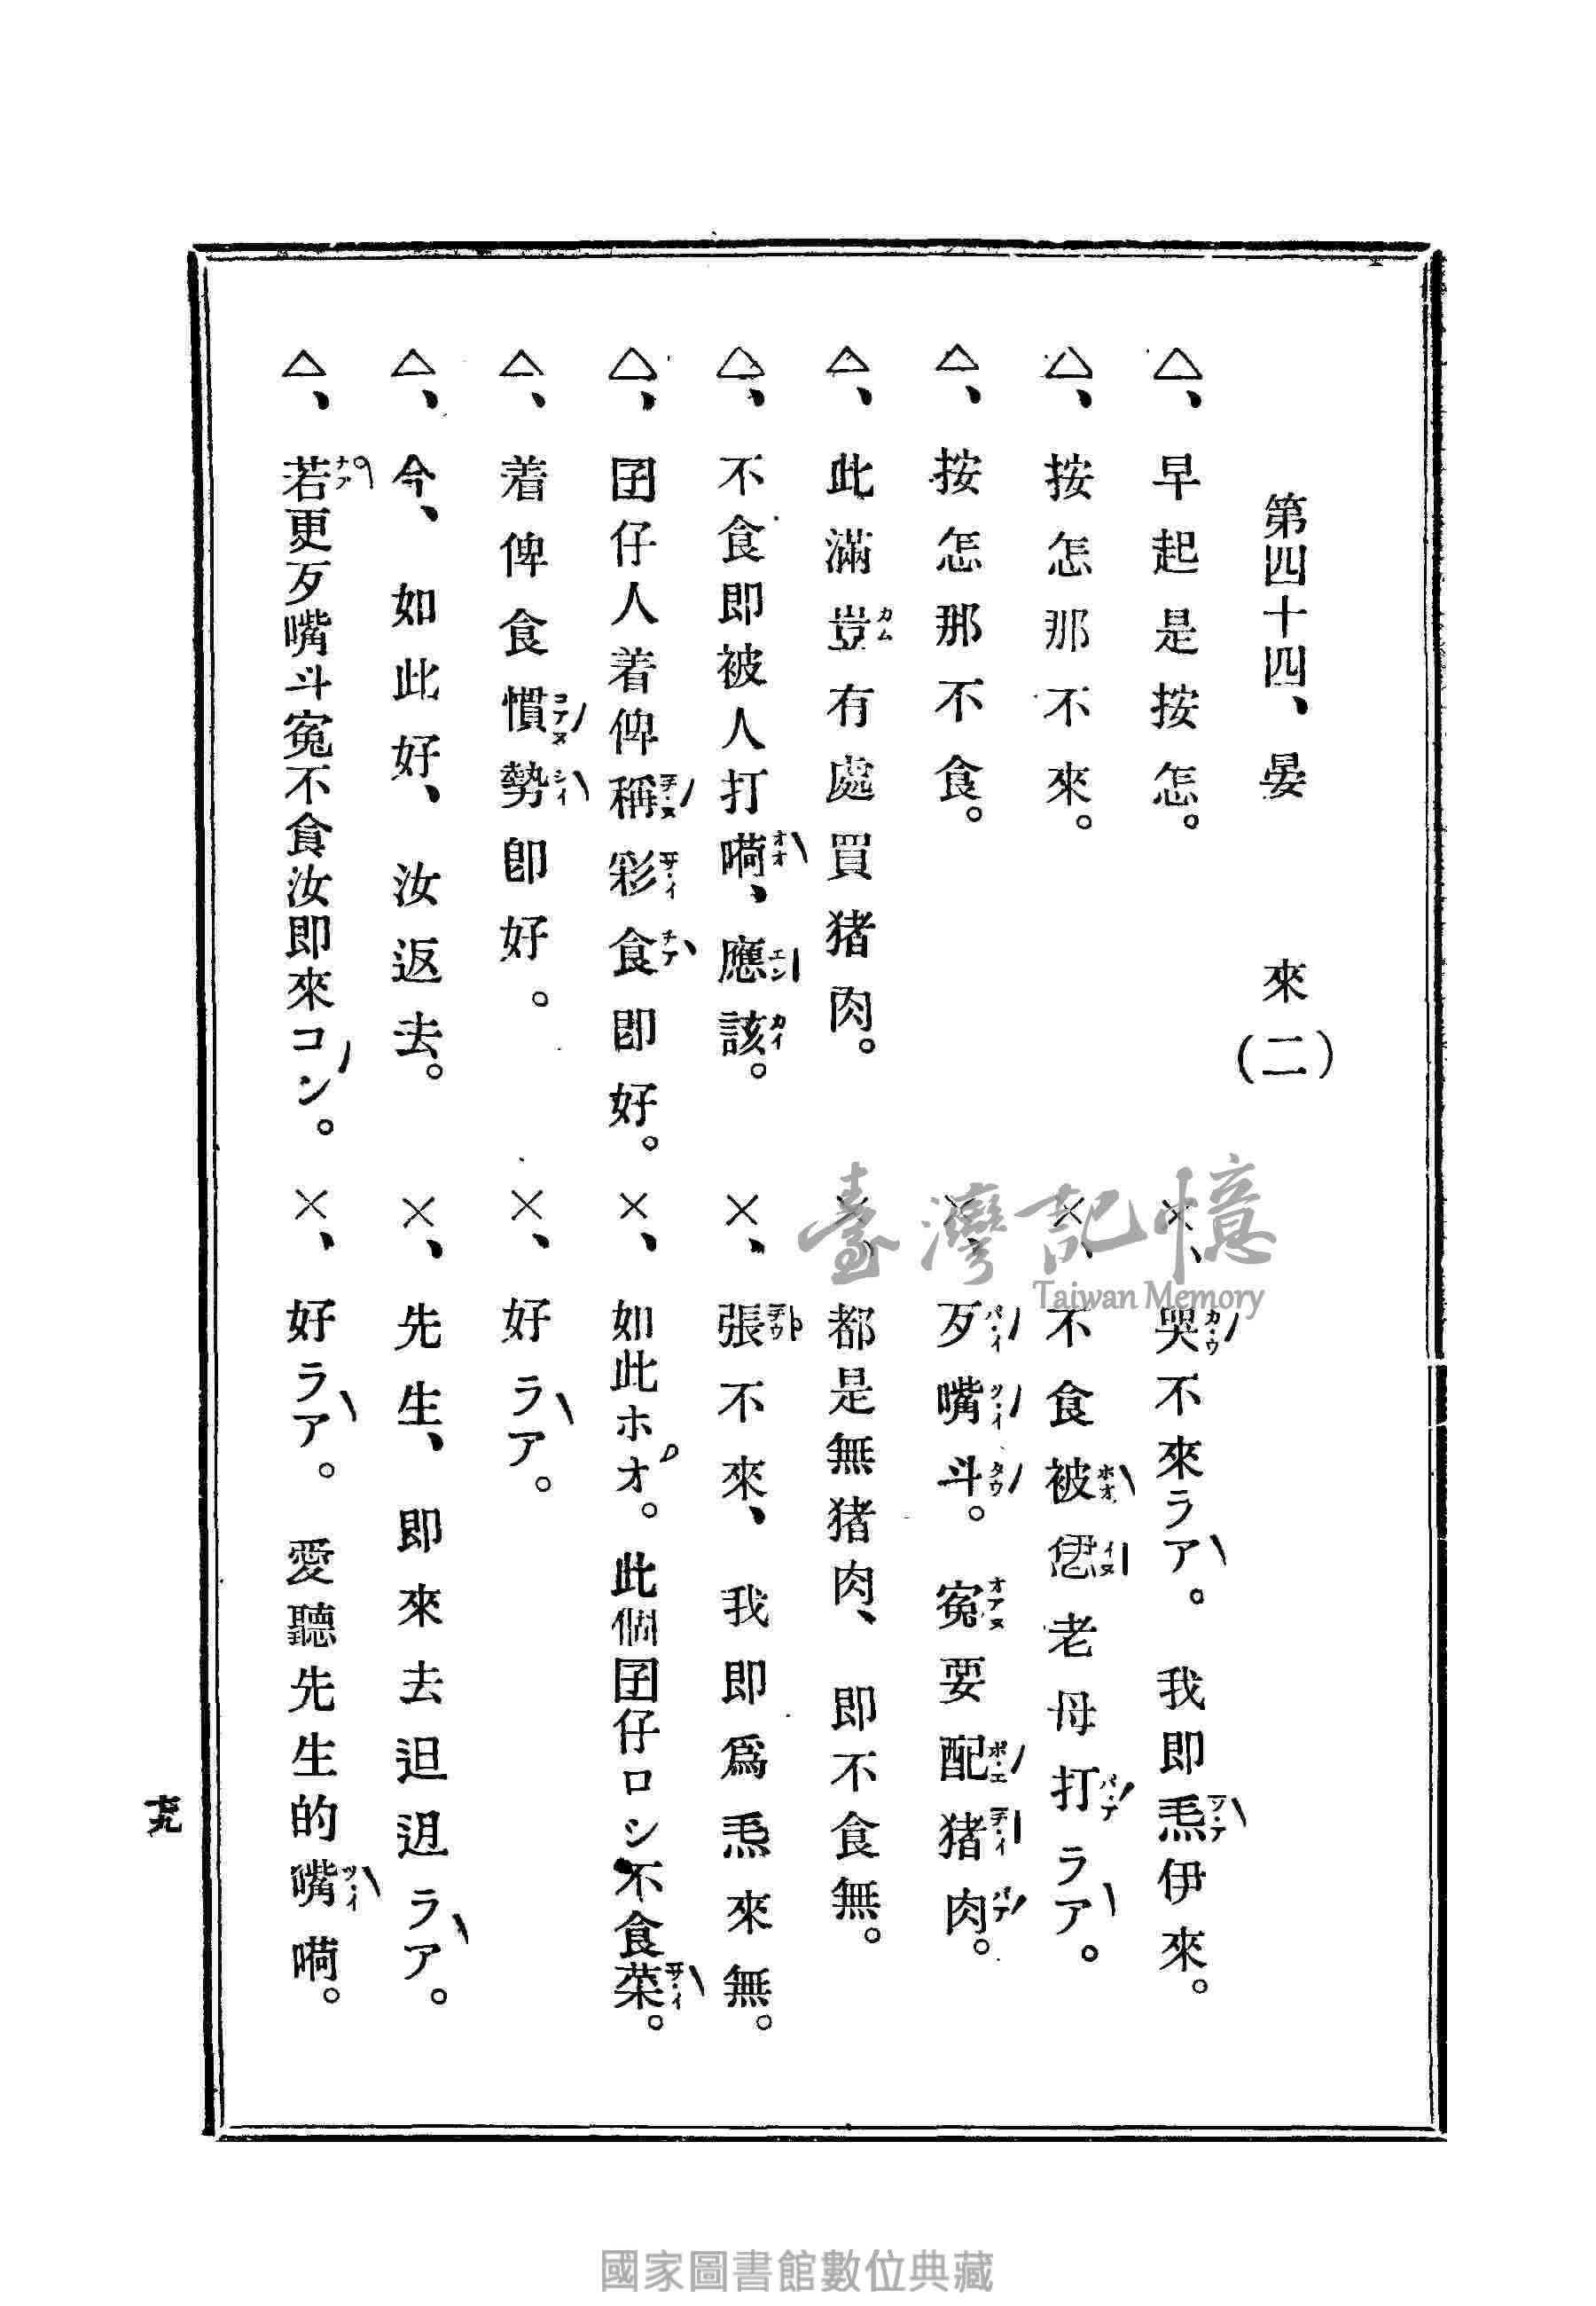 第四十四、晏來(二)
△、早起是按怎。 ×、哭不來ラア。我即𤆬伊來。
△、按怎那不來。 ×、不食被恁老母打ラア。
△、按怎那不食。 ×、歹嘴斗。寃要配猪肉。
△、此滿豈有處買猪肉。 ×、都是無猪肉、即不食無。
△、不食即被人打嗬、應該。 ×、張不來、我即爲𤆬來無。
△、囝仔人着俾稱彩食即好。 ×、如此ホオ。此個囝仔ロシ不食菜。
△、着俾食慣勢即好。 ×、好ラア。
△、今、如此好、汝返去。 ×、先生、即來去𨑨迌ラア。
△、若更歹嘴斗寃不食汝即來コン。 ×、好ラア。愛聽先生的嘴嗬。
臺灣記憶
Taiwan Memory
國家圖書館數位典藏